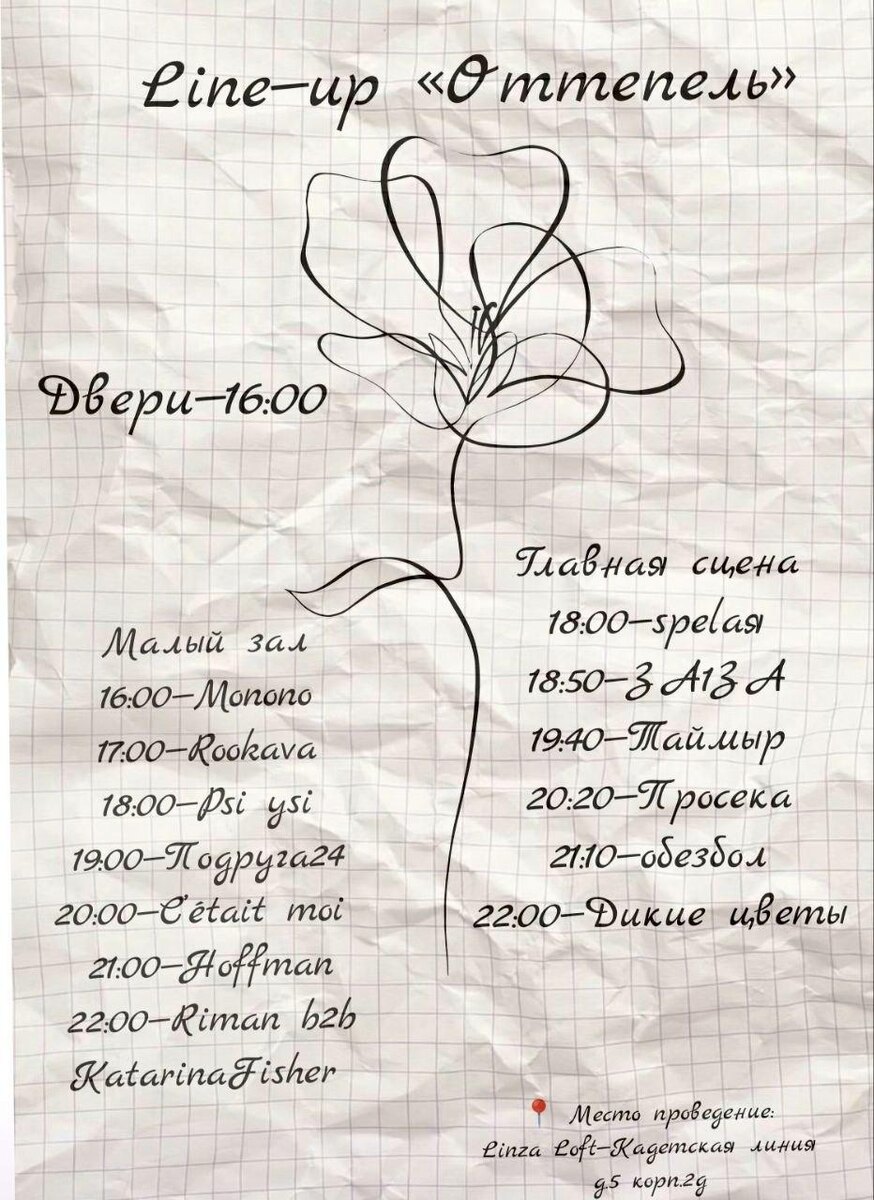 Line-up «Оттепель»
Двери-16:00
Малый зал
16:00-Monono
17:00-Rookava
18:00-Psi ysi
19:00-Подруга24
20:00-C'était moi
21:00-Hoffman
22:00-Riman b2b
KatarinaFisher
Главная сцена
18:00-spelaя
18:50-ZA1ZA
19:40-Таймыр
20:20-Просека
21:10-обезбол
22:00-Дикие цветы
📍 Место проведение:
Linza Loft-Кадетская линия
д.5 корп.2д